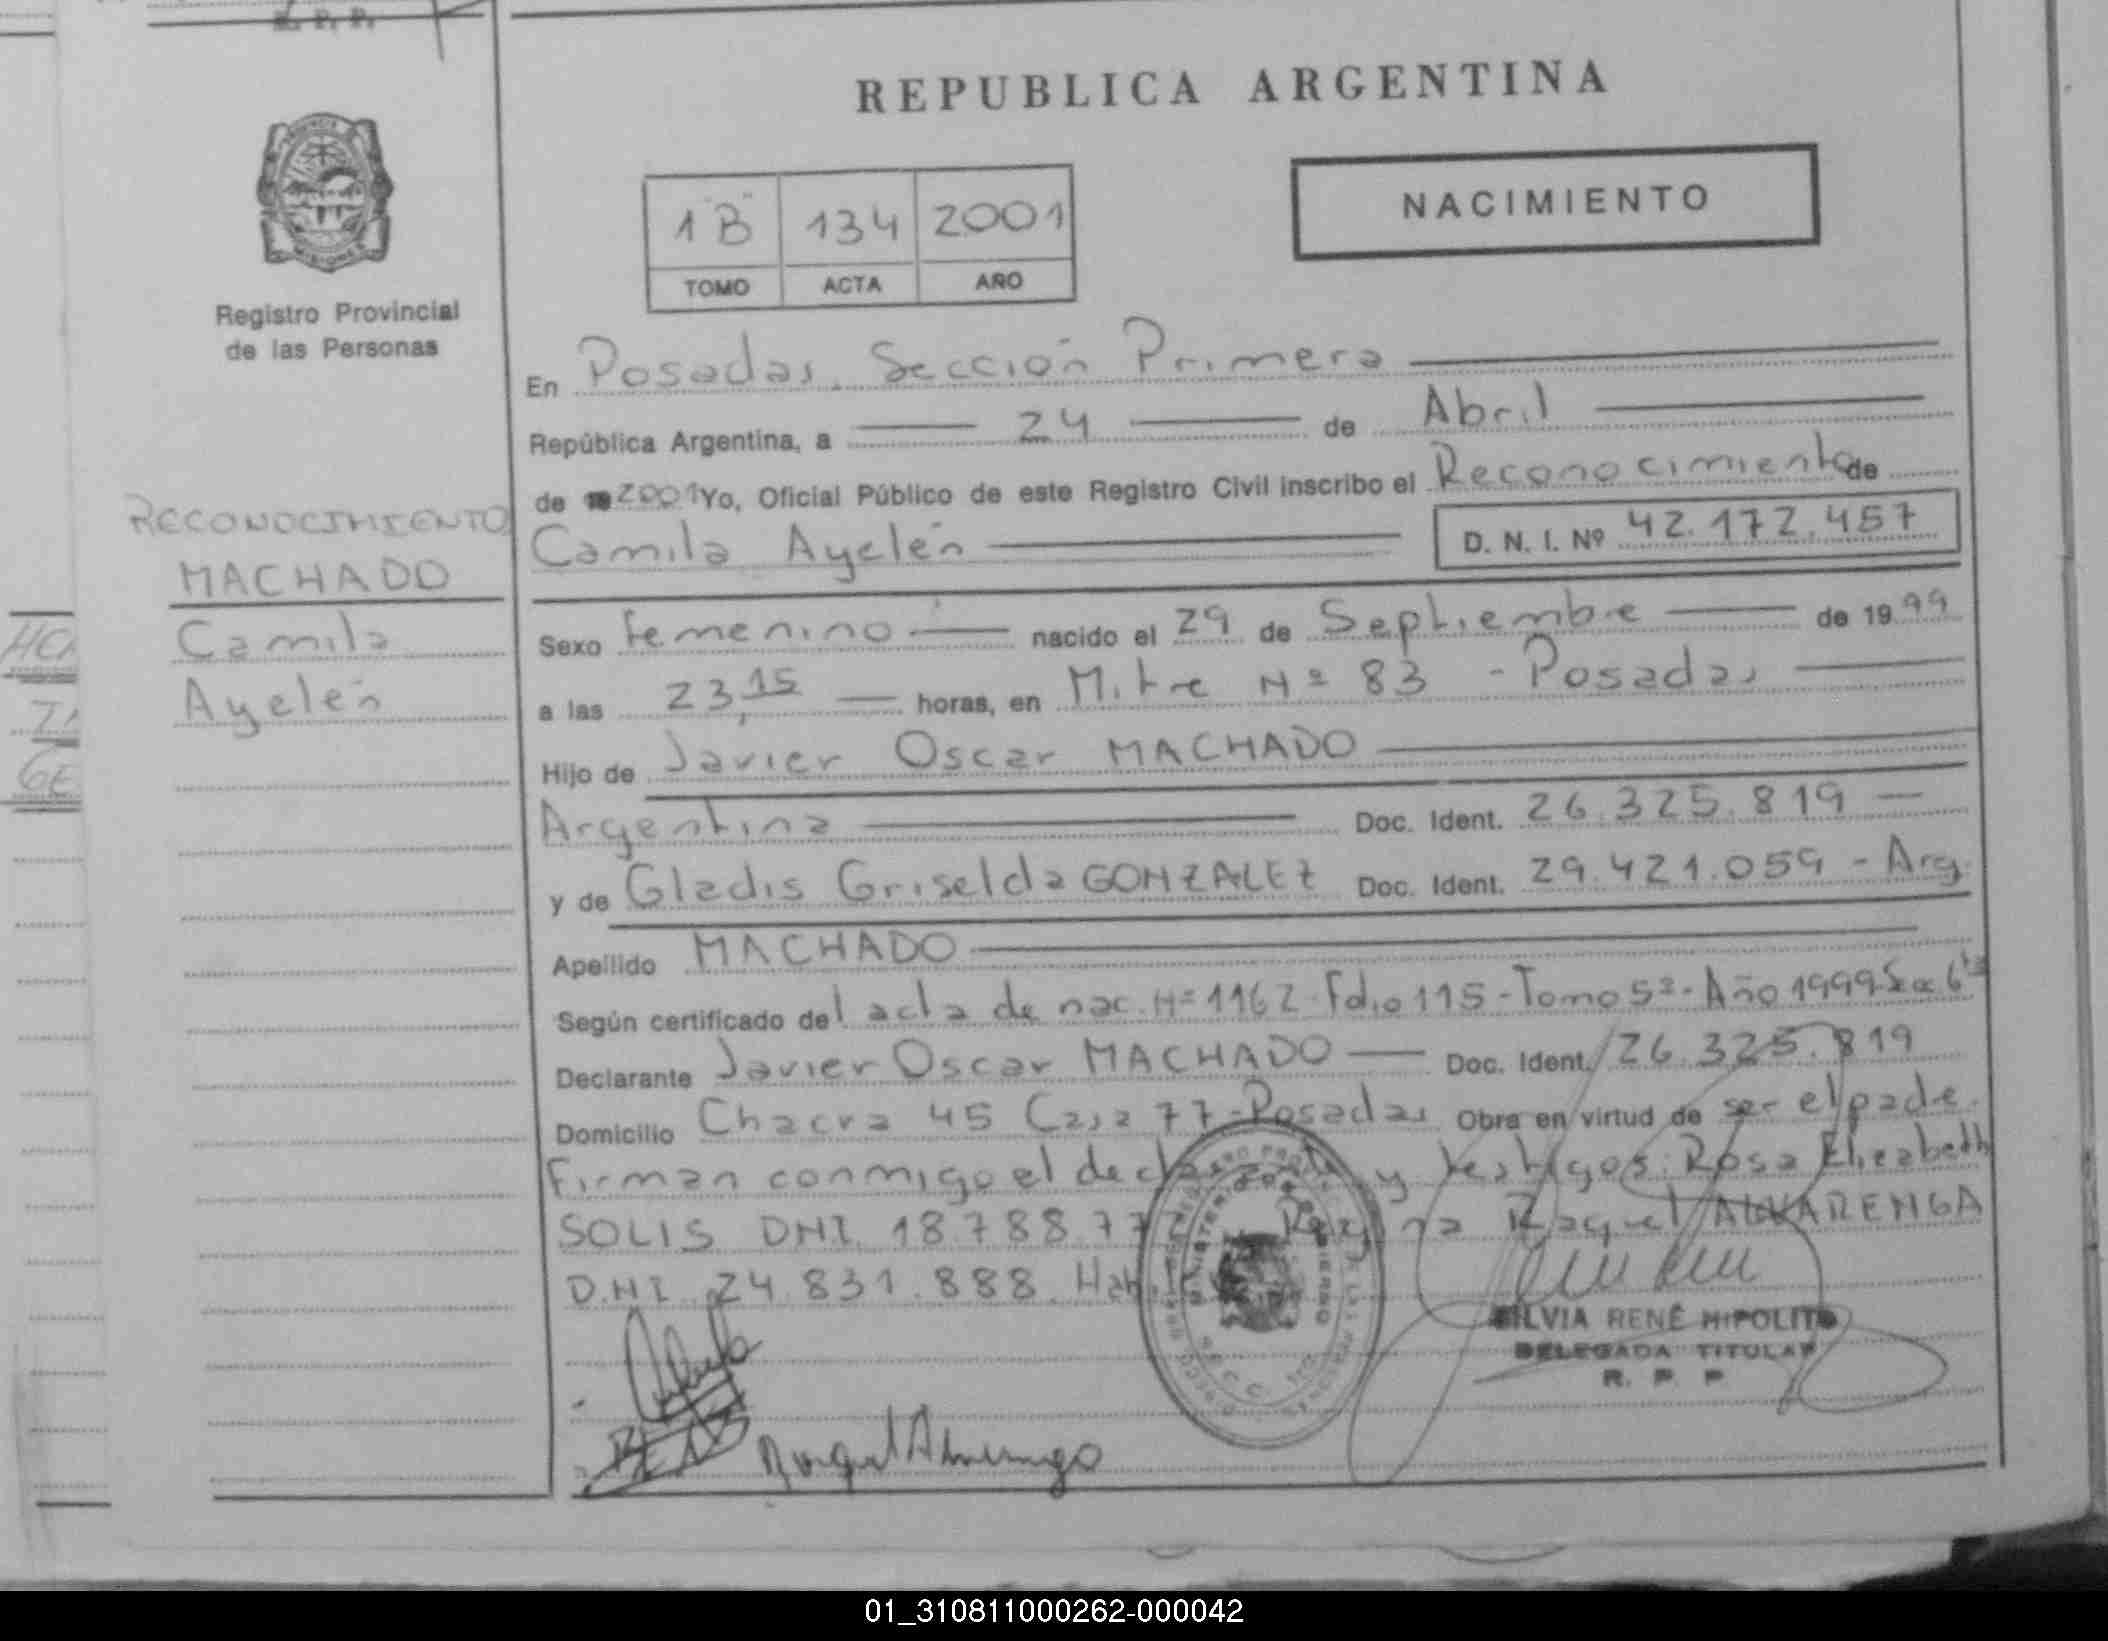 R. P. P.
REPUBLICA ARGENTINA
NACIMIENTO
1 "B" 134 2001
TOMO ACTA AÑO
PROVINCIA
MISIONES
Registro Provincial
de las Personas
RECONOCIMIENTO
MACHADO
Camila
Ayelén
En Posadas. Sección Primera
República Argentina, a 24 de Abril
de 2001 Yo, Oficial Público de este Registro Civil inscribo el Reconocimiento de
Camila Ayelén D. N. I. Nº 42.172.457
Sexo femenino nacido el 29 de Septiembre de 1999
a las 23,15 horas, en Mitre Nº 83 - Posadas
Hijo de Javier Oscar MACHADO
Argentina Doc. Ident. 26.325.819
y de Gladis Griselda GONZALEZ Doc. Ident. 29.421.059 - Arg.
Apellido MACHADO
Según certificado del acta de nac. Nº 1162 - Folio 115 - Tomo 5º - Año 1999
Declarante Javier Oscar MACHADO Doc. Ident. 26.325.819
Domicilio Chacra 45 Casa 77 - Posadas Obra en virtud de ser el padre.
Firman conmigo el y testigos: Rosa Elizabeth
SOLIS DNI 18.788.77 Raquel ALVARENGA
D.N.I. 24.831.888.
SILVIA RENÉ HIPOLITO
DELEGADA TITULAR
R. P. P.
01_310811000262-000042